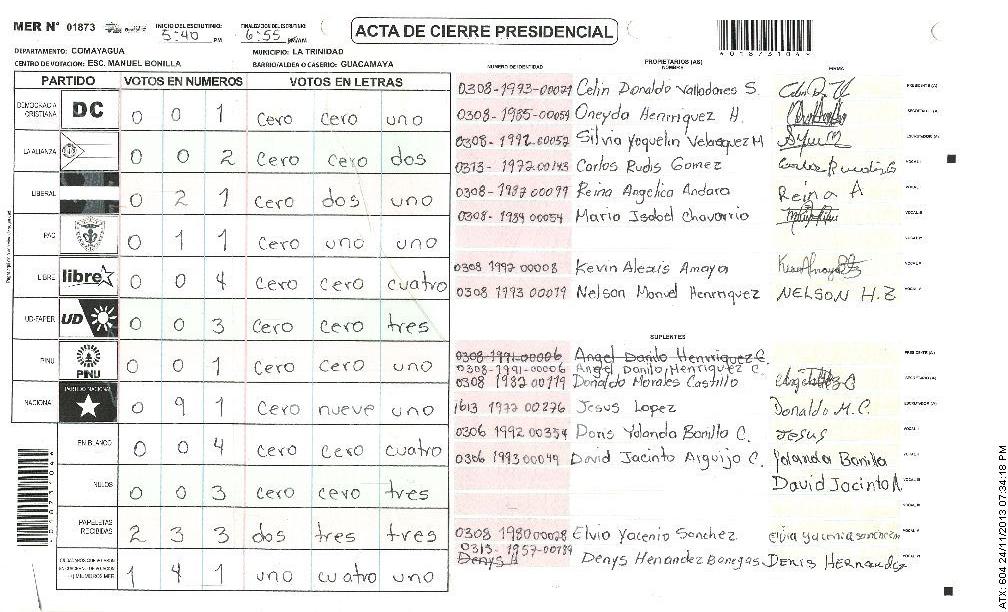 MER N° 01873
INICIO DEL ESCRUTINIO: 5:40 PM
FINALIZACION DEL ESCRUTINIO: 6:55
ACTA DE CIERRE PRESIDENCIAL
DEPARTAMENTO: COMAYAGUA
MUNICIPIO: LA TRINIDAD
CENTRO DE VOTACION: ESC. MANUEL BONILLA
BARRIO/ALDEA O CASERIO: GUACAMAYA
PARTIDO VOTOS EN NUMEROS VOTOS EN LETRAS
DEMOCRACIA CRISTIANA DC 0 0 1 cero cero uno
LA ALIANZA 0 0 2 cero cero dos
LIBERAL 0 2 1 cero dos uno
PAC 0 1 1 cero uno uno
LIBRE libre 0 0 4 cero cero cuatro
UD-FAPER UD 0 0 3 cero cero tres
PINU PINU 0 0 1 cero cero uno
NACIONAL PARTIDO NACIONAL 0 9 1 cero nueve uno
EN BLANCO 0 0 4 cero cero cuatro
NULOS 0 0 3 cero cero tres
PAPELETAS RECIBIDAS 2 3 3 dos tres tres
1 4 1 uno cuatro uno
NUMERO DE IDENTIDAD PROPIETARIOS (AS) NOMBRE FIRMA
0308-1993-00021 Celin Donaldo Valladares S. PRESIDENTE (A)
0308-1985-00054 Oneyda Henrriquez H. SECRETARIO (A)
0308-1992-00052 Silvia Yoquelin Velasquez M ESCRUTADOR (A)
0313-1972-00143 Carlos Rudis Gomez
0308-1987 00099 Reina Angelica Andara Reina A
0308-1989 00054 Maria Isabel Chavarria
0308 1992 00008 Kevin Alexis Amaya
0308 1993 00019 Nelson Manuel Henrriquez NELSON H.Z
SUPLENTES
0308-1991-00006 Angel Danilo Henrriquez C PRESIDENTE (A)
0308-1991-00006 Angel Danilo Henriquez C.
0308 1982 00119 Donaldo Morales Castillo SECRETARIO (A)
1613 1972 00276 Jesus Lopez Donaldo M.C. ESCRUTADOR (A)
0306 1992 00354 Doris Yolanda Bonilla C. Jesus
0306 1993 00049 David Jacinto Arguijo C. Yolanda Bonilla
David Jacinto A
0308 1980 00028 Elvia Yacenia Sanchez elvia yacenia sanchez
0313-1957-00189
Denys H Denys Henandez Banegas DENIS HERNANDEZ
ATX: 604 24/11/2013 07:34:18 PM